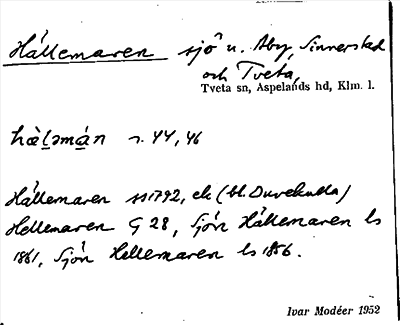 Hållemaren sjö u. Åby, Sinnerstad
och Tveta,
Tveta sn, Aspelands hd, Klm. l.
hȧ̀l̲əmȧ́n r. 44, 46
Hållemaren 1792, ek (bl. Duvekulla)
Hellemaren G 28, Sjön Hållemaren ls
1861, Sjön Hellemaren ls 1856.
Ivar Modéer 1952